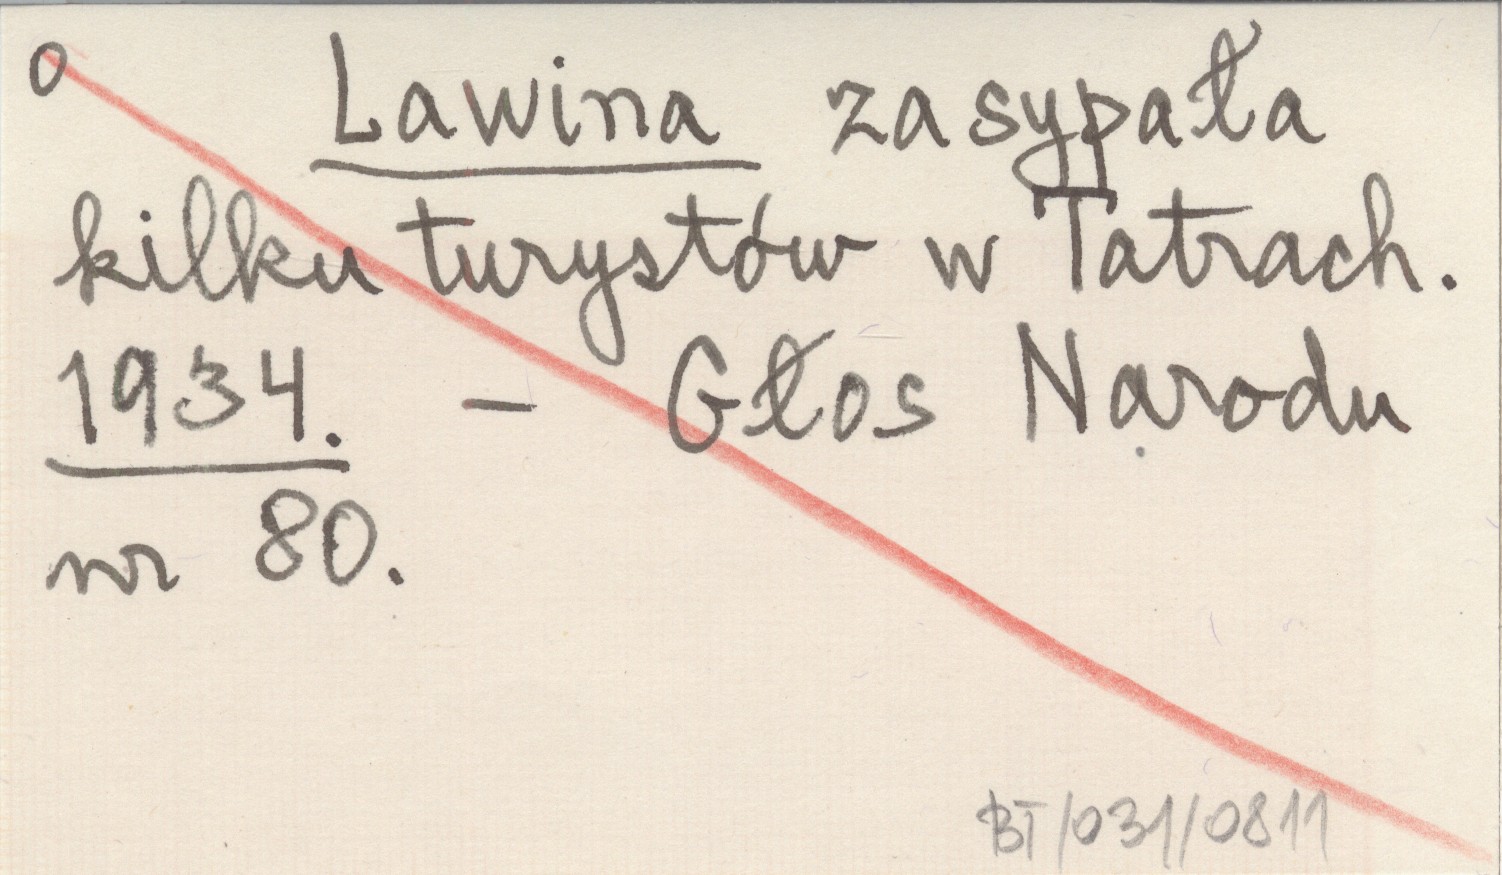 o Lawina zasypała
kilku turystów w Tatrach.
1934. – Głos Narodu
nr 80.
BT/031/0811